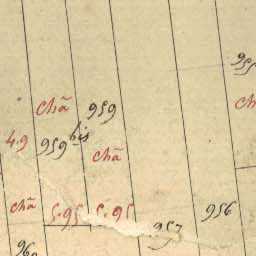 955
chã 959
ch
4.9 959 bis
chã
chã 5.95 5.95
957 956
960